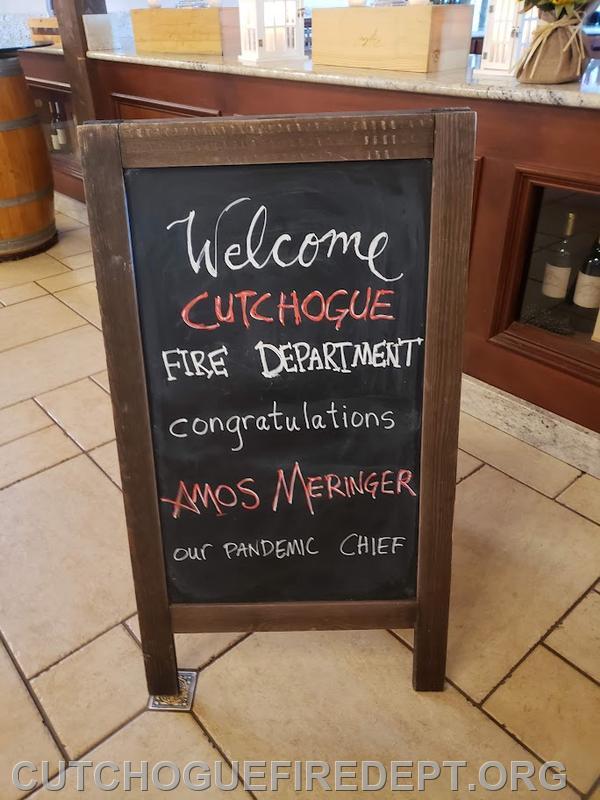 Welcome
CUTCHOGUE
FIRE DEPARTMENT
congratulations
AMOS MERINGER
our PANDEMIC CHIEF
CUTCHOGUEFIREDEPT.ORG